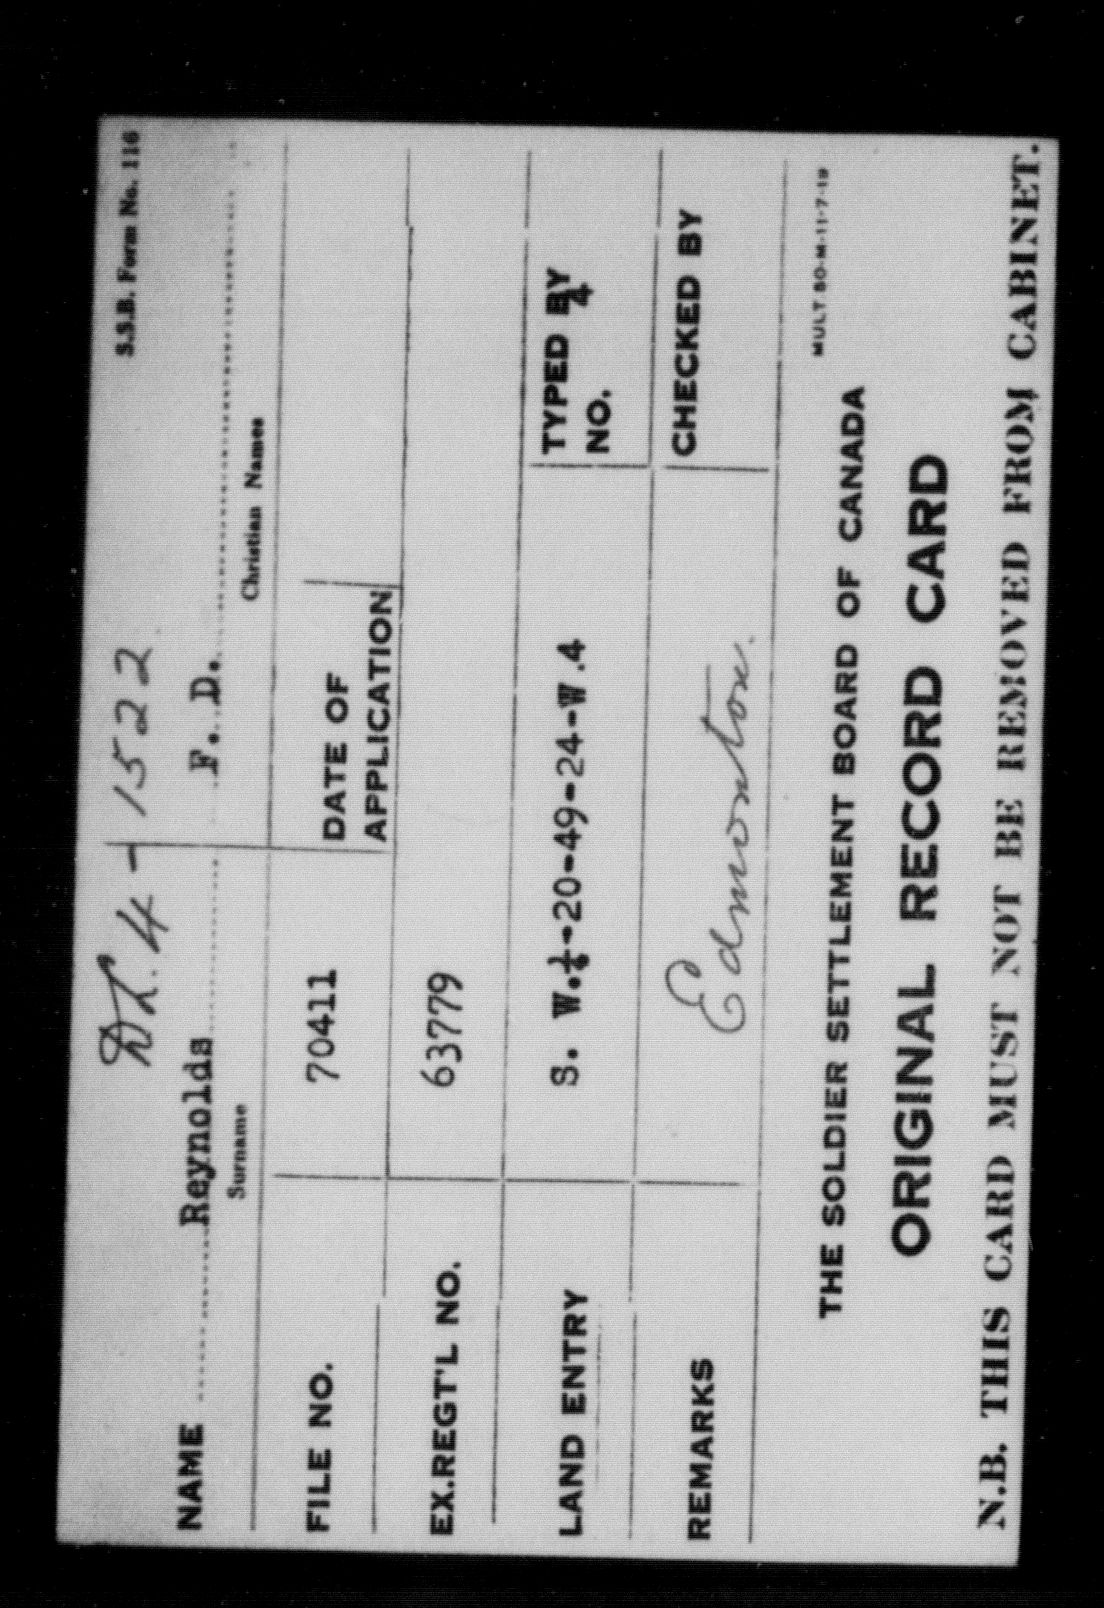 S.S.B. Form No. 116
DL.4-1522
NAME Reynolds F. D.
Surname Christian Names
FILE NO. 70411 DATE OF APPLICATION
EX.REGT'L NO. 63779
LAND ENTRY S. W.¼-20-49-24-W.4 TYPED BY
NO. 4
REMARKS Edmonton. CHECKED BY
MULT 50-M-11-7-19
THE SOLDIER SETTLEMENT BOARD OF CANADA
ORIGINAL RECORD CARD
N.B. THIS CARD MUST NOT BE REMOVED FROM CABINET.